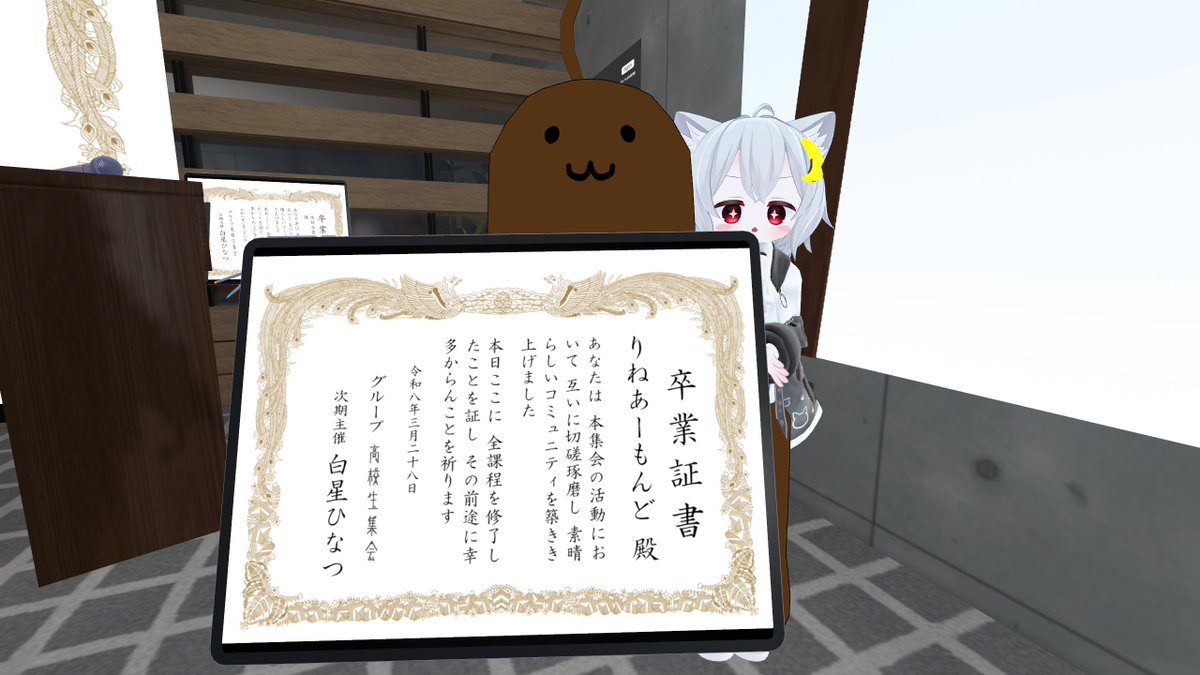 卒業証書
りねあーもんど 殿
あなたは 本集会の活動にお
いて 互いに切磋琢磨し 素晴
らしいコミュニティを築きき
上げました
本日ここに 全課程を修了し
たことを証し その前途に幸
多からんことを祈ります
令和八年三月二十八日
グループ 高校生集会
次期主催 白星ひなつ
卒業
白星ひなつ